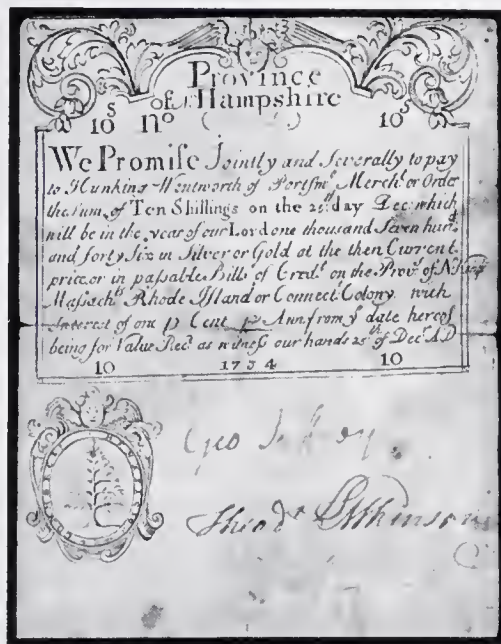 Province
of N Hampshire
10s No ( ) 10s
We Promiſe Jointly and Severally to pay
to Hunking Wentworth of Portsmo Mercht or Order
the Sum of Ten Shillings on the 25th day Decr which
will be in the year of our Lord one thousand Seven hund
and forty Six in Silver or Gold at the then Current
price or in paſsable Bills of Credt on the Prove of N Hamp
Maſsachts Rhode Iſland or Connectt Colony with
Interest of one p Cent p Ann from ye date hereof
being for Value Recd as witneſs our hands 25th of Decr AD
10 1734 10
Geo
Theodr Atkinson